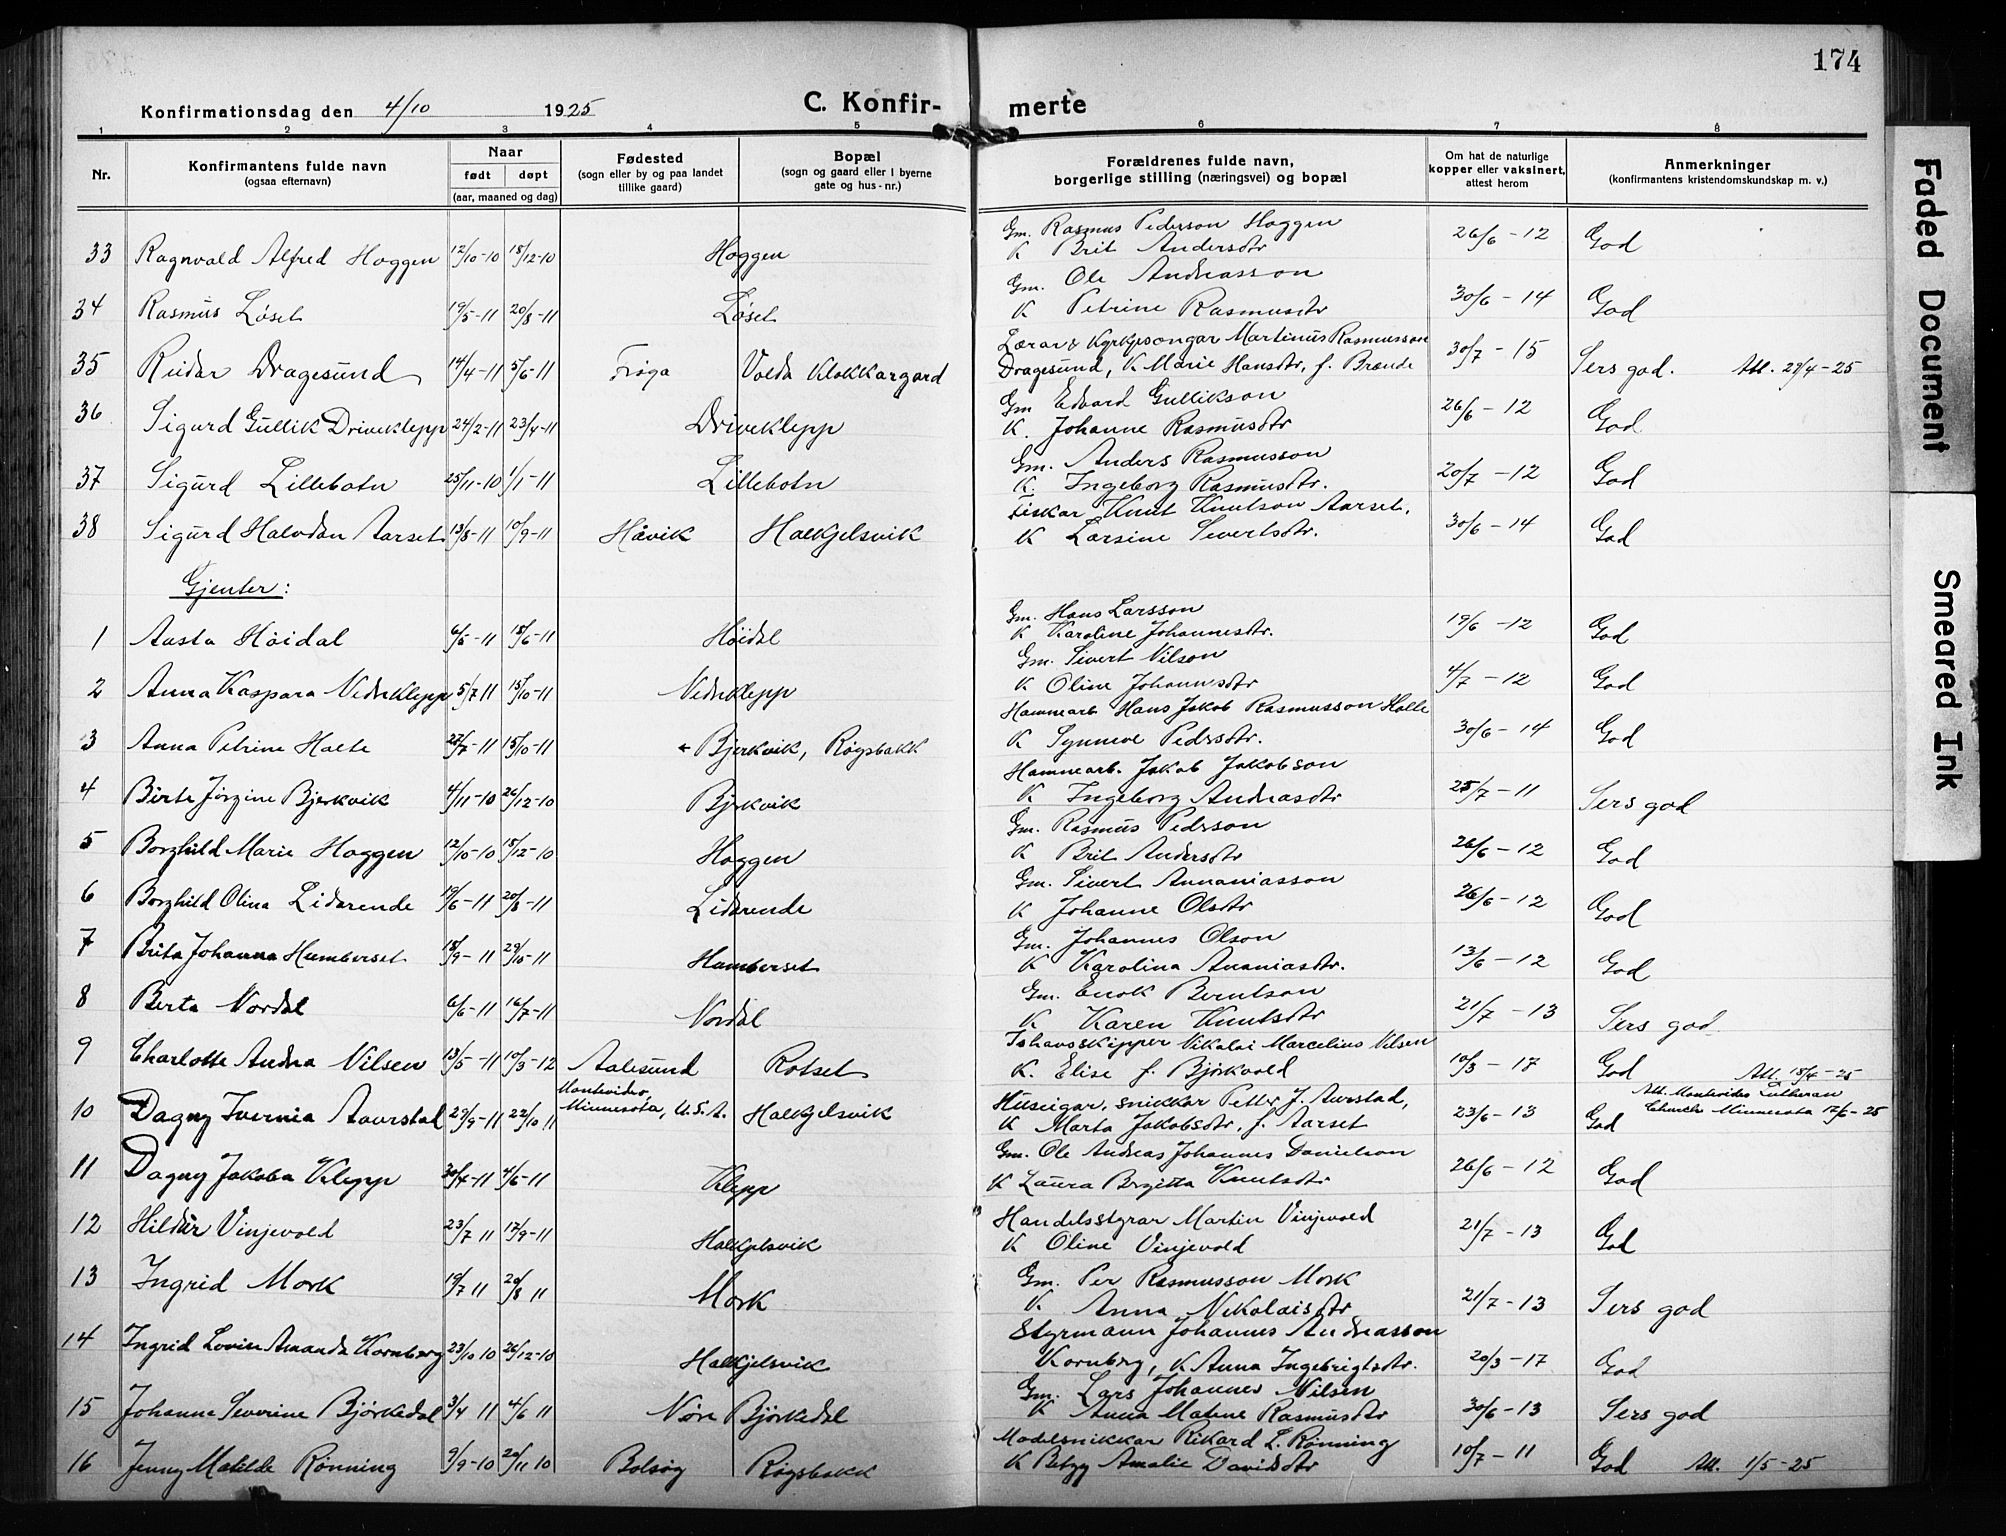 174
Konfirmationsdag den 4/10 1925 C. Konfir- merte
1 2 3 4 5 6 7 8
Nr. Konfirmantens fulde navn (ogsaa efternavn) Naar født døpt (aar, maaned og dag) Fødested (sogn eller by og paa landet tillike gaard) Bopæl (sogn og gaard eller i byerne gate og hus-nr.) Forældrenes fulde navn, borgerlige stilling (næringsvei) og bopæl Om hat de naturlige kopper eller vaksinert, attest herom Anmerkninger (konfirmantens kristendomskundskap m. v.)
33 Ragnvald Alfred Hoggen 12/10-10 18/12-10 Hoggen Gm. Rasmus Pederson Hoggen K Brit Andersdtr 26/6-12 God
34 Rasmus Løset 19/5-11 20/8-11 Løset Gm. Ole Andreasson K Petrine Rasmusdtr 30/6-14 God
35 Reidar Dragesund 14/4-11 5/6-11 Volda Klokkargard Lærar & Kyrkjesongar Martinus Rasmusson Dragesund, K Marie Hansdtr, f. Brende 30/7-15 Sers god. Att. 29/4-25
36 Sigurd Gullik Driveklepp 24/2-11 23/4-11 Driveklepp Gm Edvard Gullikson K. Johanne Rasmusdtr 26/6-12 God
37 Sigurd Lillebotn 25/11-10 1/1-11 Lillebotn Gm. Anders Rasmusson K. Ingeborg Rasmusdtr. 20/7-12 God
38 Sigurd Halvdan Aarset 13/8-11 10/9-11 Håvik Halkjelsvik Fiskar Knut Knutson Aarset. K Larsine Sivertsdtr. 30/6-14 God
Gjenter:
1 Aasta Høidal 6/5-11 18/6-11 Høidal Gm. Hans Larsson K Karoline Johannesdtr. 19/6-12 God
2 Anna Kaspara Vedreklepp 5/7 11 15/10-11 Vedreklepp Gm. Sivert Nilson K Oline Johannsdtr 4/7-12 God
3 Anna Petrine Holte 27/7-11 15/10-11 Bjerkvik, Røgsbakk Hamnearb Hans Jakob Rasmusson Holte K Synneve Pedrsdtr. 30/6-14 God
4 Birte Jørgine Bjerkvik 4/11-10 26/12-10 Bjrkvik Hamnearb. Jakob Jakobson K Ingeborg Andreasdtr 25/7-11 Sers god
5 Borghild Marie Hoggen 12/10-10 18/12-10 Hoggen Gm. Rasmus Pedrsson K Brit Andersdtr 26/6-12 God
6 Borghild Olina Lidarende 19/6-11 20/8-11 Lidarende Gm. Sivert Annaniasson K Johanne Olsdtr 26/6-12 God
7 Brita Johanna Humberset 18/9-11 29/10-11 Humberset Gm. Johannes Olson K Karolina Ananiasdtr. 13/6-12 God
8 Berta Nordal 6/6-11 16/7-11 Nordal Gm. Enok Berntson K Karen Knutsdtr 21/7-13 Sers god
9 Charlotte Andrea Nilsen 13/5-11 10/3-12 Aalesund Rotset Ishavsskipper Nikolai Marcelius Nilsen K. Elise f. Bjørkvold 10/3-17 God Att. 18/4-25
10 Dagny Ivernia Aaurstad 29/9-11 22/10 11 Montevideo, Minnesota, U.S.A. Halkjelsvik Huseigar, snikkar Petter J. Aurstad, K Marta Jakobsdtr, f. Aarset 23/6-13 God Att. Montevideo Lutheran Church Minnesota 12/6-25
11 Dagny Jakoba Klepp 30/4-11 4/6-11 Klepp Gm. Ole Andreas Johannes Danielson K Laura Birgitta Knutsdtr 26/6-12 God
12 Hildur Vinjevold 23/7 11 17/9-11 Halkjelsvik Handelsstyrar Martin Vinjevold K Oline Vinjevold 21/7-13 God
13 Ingrid Mork 19/7 11 20/8 11 Mork Gm. Per Rasmusson Mork K Anna Nikolaisdtr 21/7-13 Sers god
14 Ingrid Lovise Amanda Kornberg 23/10 10 26/12-10 Halkjelsvik Styrmann Johannes Andreasson Kornberg, K Anna Ingebrigtsdtr. 20/3-17 God
15 Johanne Severine Bjørkedal 3/4 11 4/6 11 Nøre Bjørkedal Gm. Lars Johannes Nilsen K Anna Matene Rasmusdtr 30/6-13 Sers god
16 Jenny Matilde Rønning 9/9-10 20/11 10 Bolsøy Røgsbakk Modelsnikkar Rikard L. Rønning K Betzy Amalie Davidsdtr 10/7-11 God Att. 1/5-25
Faded Document
Smeared Ink